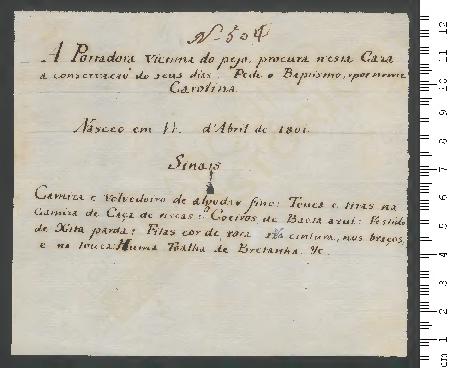 Nº 504
A Portadora victima do pejo, procura nesta Caza
a conservação do seus dias. Pede o Baptismo, e por nome
Carolina.
Nasceo em 11. d'Abril de 1801
Sinais
Camiza e volvedoiro de algodão fino: Touca e tiras na
Camiza de Caça de riscas: Coeiros de Baeta azul: Vestido
de Xita parda: Fitas cor de roza na cintura, nos braços,
e na touca: Huma Toalha de Bretanha. &c.
cm 1 2 3 4 5 6 7 8 9 10 11 12